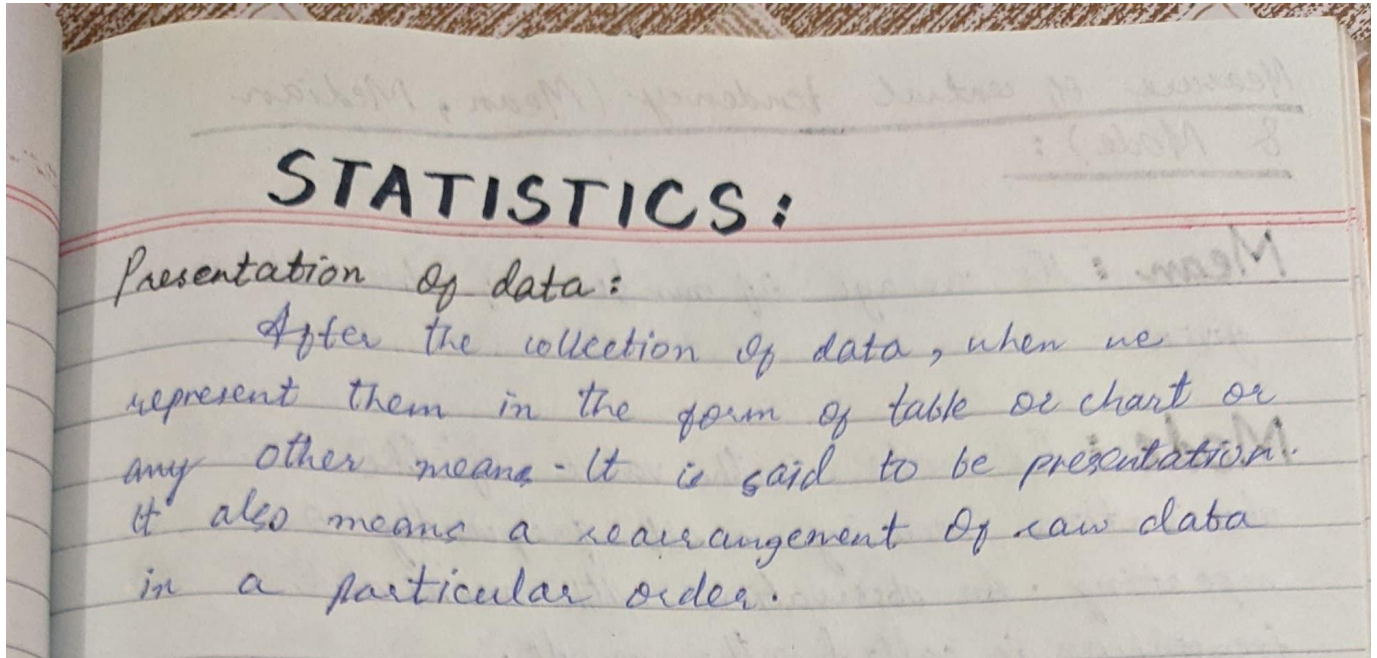 STATISTICS:
Presentation of data:
After the collection of data, when we
represent them in the form of table or chart or
any other means - It is said to be presentation.
It also means a rearrangement of raw data
in a particular order.